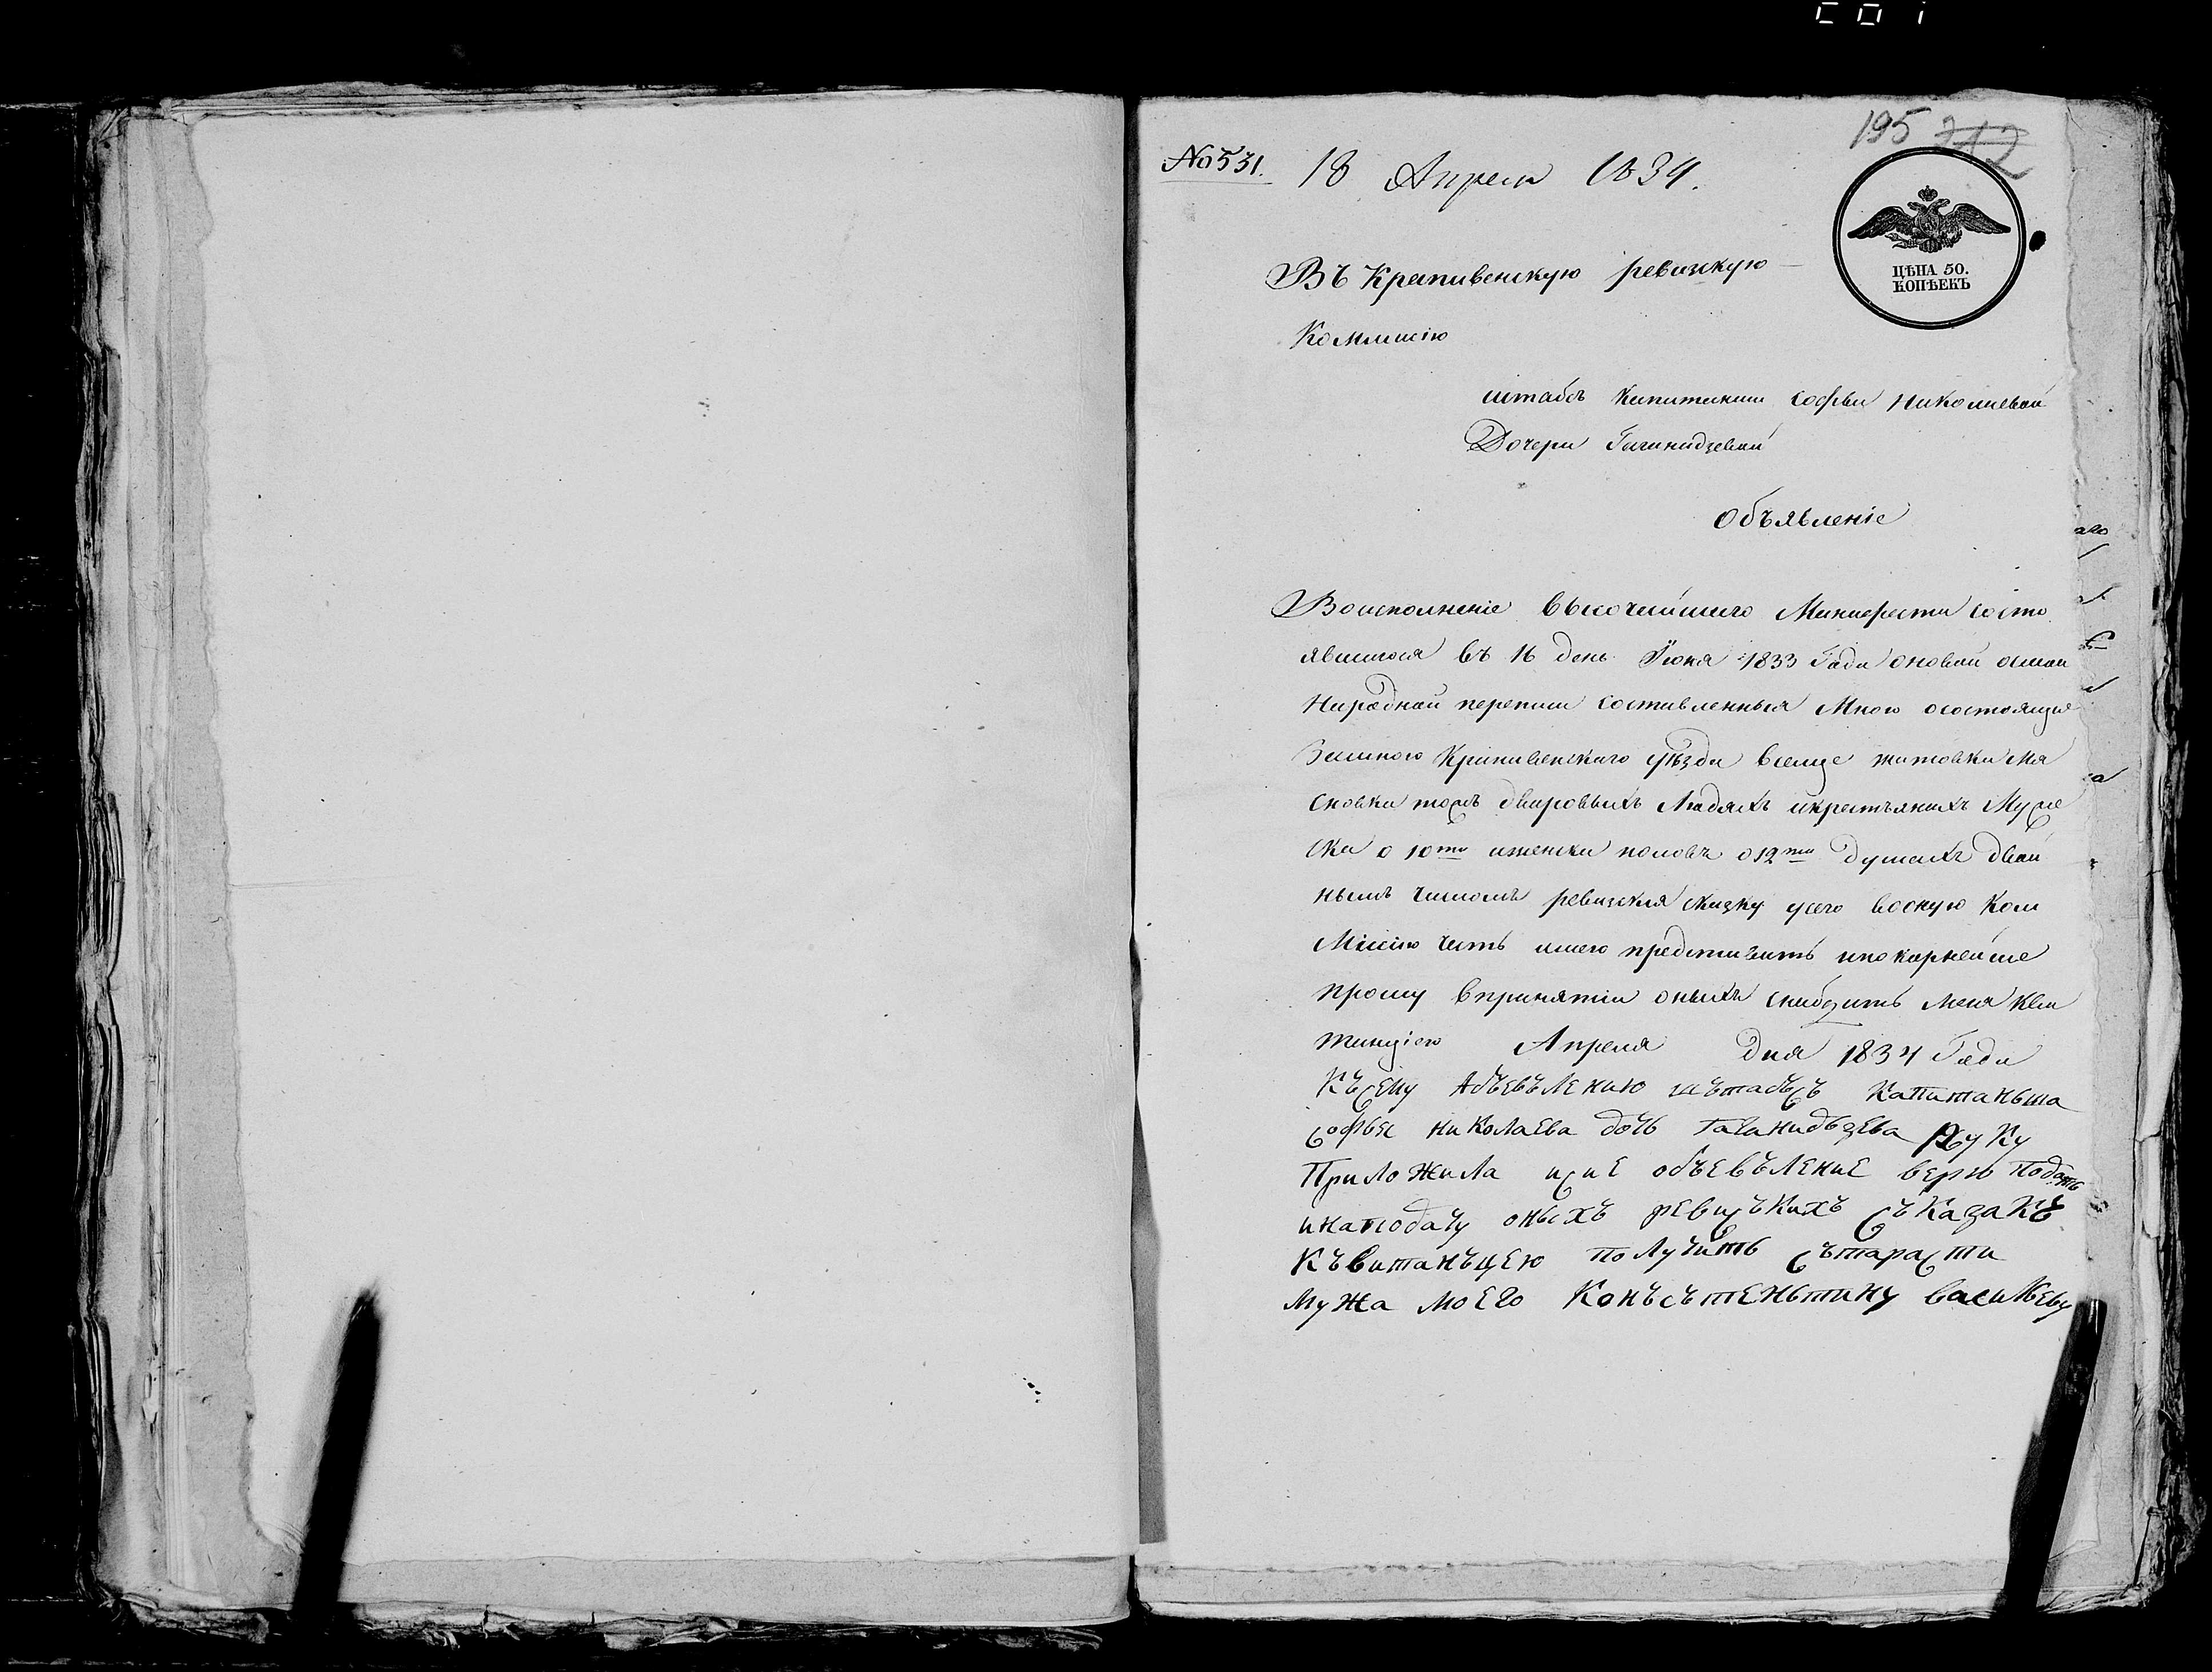 195 212
No 531. 18 Апреля 1834.
ЦѢНА 50.
КОПѢЕКЪ
Въ Крапивенскую ревизкую
Коммисію
штабсъ Капитанши Софьи Николаевой
Дочери
Объявленіе
Воисполненіе высочайшаго Манифеста состо
явшагося въ 16 день Іюня 1833 Года оновой осмой
Народной переписи составленныя Мною осостоящие
Замною Крапивенскаго уѣзда всельце житовки Ма
сновка тожъ дворовыхъ Людяхъ икрестьянахъ Муже
ска о 10ти иженска половъ о 12ти душахъ двой
нымъ числомъ ревизския скаску усего вооную Ком
Миссию честь имею представить ипокорнейше
прошу впринятіи оныхъ снабдить меня Кви
танціею Апреля дня 1834 Года
Къ сему абъевълению шътабъсъ Капитаньша
софья николаева дочь Гаганидъзева Руку
Приложила исие объевъление верю подать
инаподачу оныхъ ревиськихъ съказакъ
Къвитанъцею получить старасти
мужа моего Конъсътеньтину василиеву